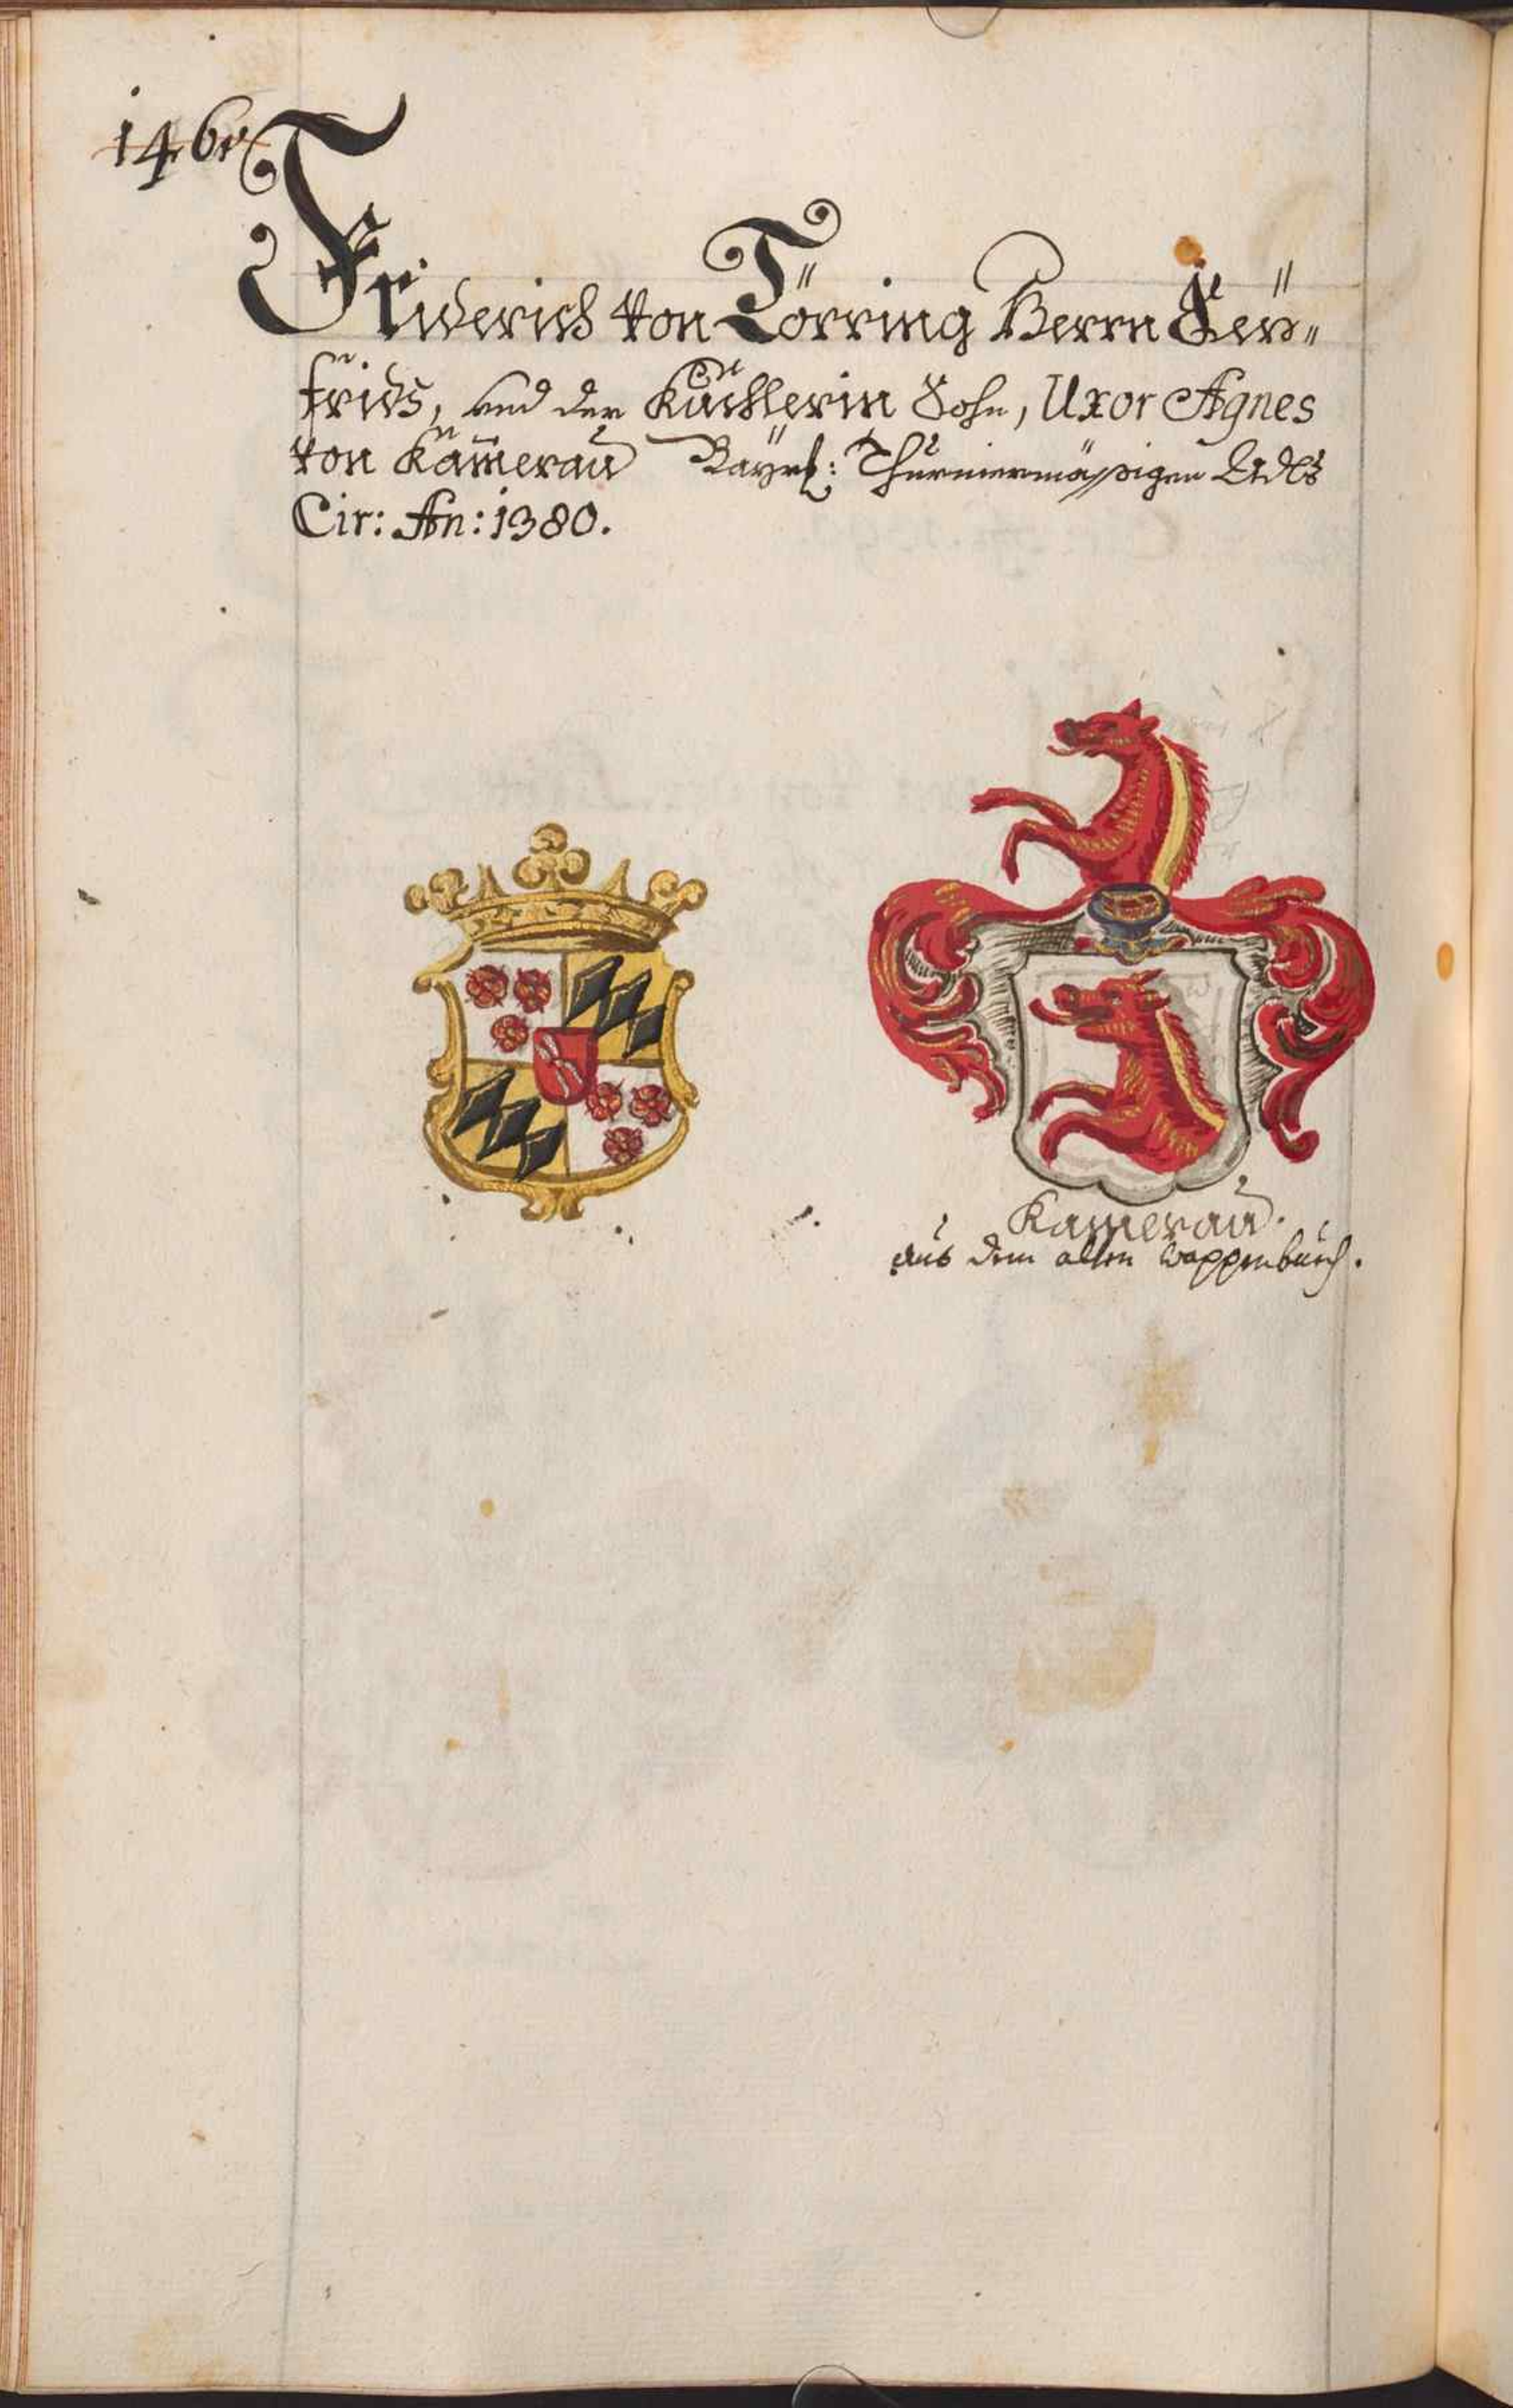 146v
Friderich von Törring Herrn Sey„
frids, und der Kuchlerin Sohn, Uxor Agnes
von Kam̄erau Bayrl: Thurniermässigen Adls
Cir: An: 1380.
Kamerau.
aus dem alten wappenbuch.